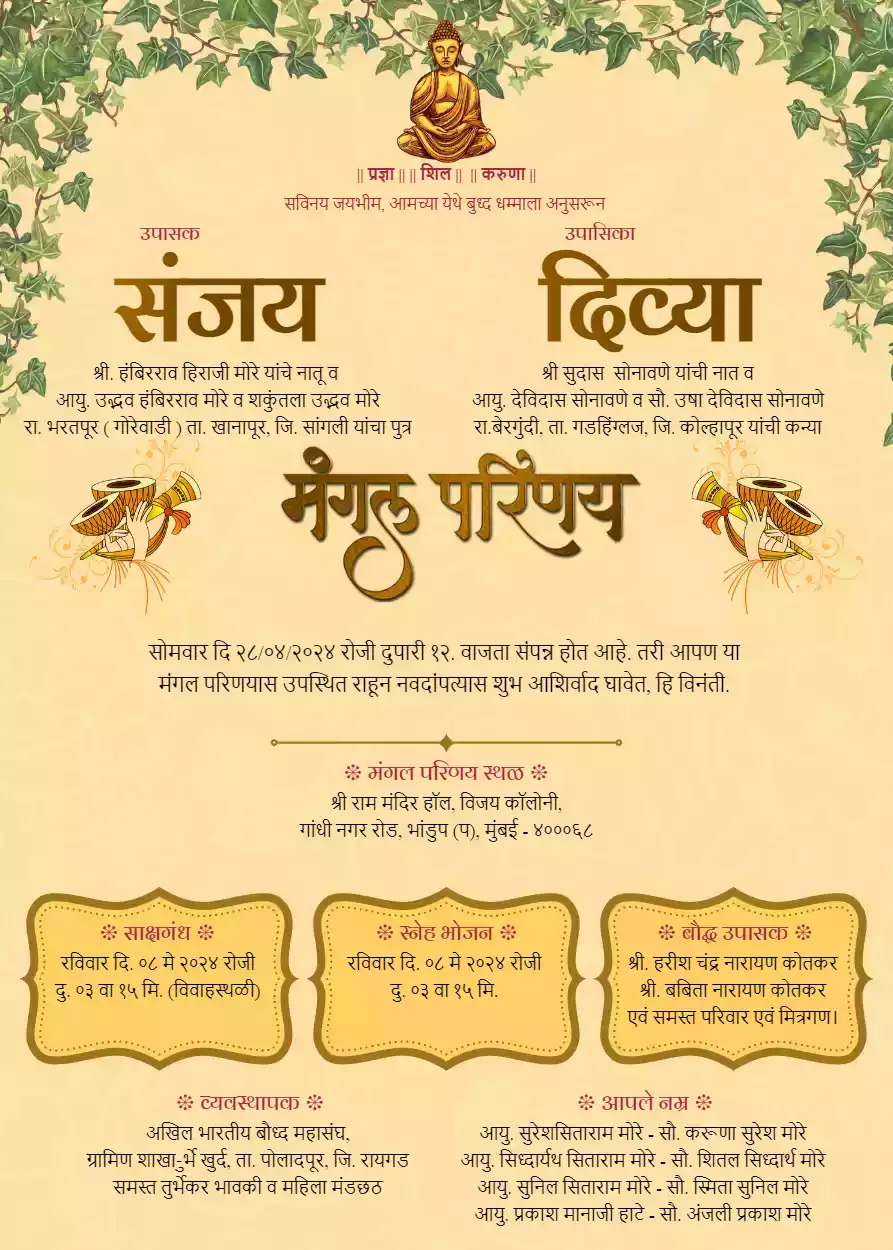 || प्रज्ञा || || शिल || || करुणा ||
सविनय जयभीम, आमच्या येथे बुध्द धम्माला अनुसरून
उपासक
संजय
श्री. हंबिरराव हिराजी मोरे यांचे नातू व
आयु. उद्धव हंबिरराव मोरे व शकुंतला उद्धव मोरे
रा. भरतपूर ( गोरेवाडी ) ता. खानापूर, जि. सांगली यांचा पुत्र
उपासिका
दिव्या
श्री सुदास सोनावणे यांची नात व
आयु. देविदास सोनावणे व सौ. उषा देविदास सोनावणे
रा.बेरगुंदी, ता. गडहिंग्लज, जि. कोल्हापूर यांची कन्या
मंगल परिणय
सोमवार दि २८/०४/२०२४ रोजी दुपारी १२. वाजता संपन्न होत आहे. तरी आपण या
मंगल परिणयास उपस्थित राहून नवदांपत्यास शुभ आशिर्वाद घावेत, हि विनंती.
मंगल परिणय स्थळ
श्री राम मंदिर हॉल, विजय कॉलोनी,
गांधी नगर रोड, भांडुप (प), मुंबई - ४०००६८
साक्षगंध
रविवार दि. ०८ मे २०२४ रोजी
दु. ०३ वा १५ मि. (विवाहस्थळी)
स्नेह भोजन
रविवार दि. ०८ मे २०२४ रोजी
दु. ०३ वा १५ मि.
बौद्ध उपासक
श्री. हरीश चंद्र नारायण कोतकर
श्री. बबिता नारायण कोतकर
एवं समस्त परिवार एवं मित्रगण।
व्यवस्थापक
अखिल भारतीय बौध्द महासंघ,
ग्रामिण शाखा-ुर्भे खुर्द, ता. पोलादपूर, जि. रायगड
समस्त तुर्भेकर भावकी व महिला मंडछठ
आपले नम्र
आयु. सुरेशसिताराम मोरे - सौ. करूणा सुरेश मोरे
आयु. सिध्दार्यथ सिताराम मोरे - सौ. शितल सिध्दार्थ मोरे
आयु. सुनिल सिताराम मोरे - सौ. स्मिता सुनिल मोरे
आयु. प्रकाश मानाजी हाटे - सौ. अंजली प्रकाश मोरे